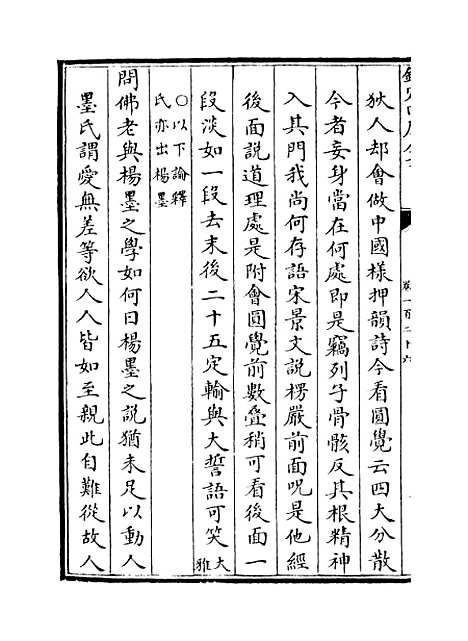 卷一百二十六
狄人却會做中國様押韻詩今看圓覺云四大分散
今者妄身當在何處即是竊列子骨骸反其根精神
入其門我尚何存語宋景文說楞嚴前面呪是他經
後面說道理處是附會圓覺前數疊稍可看後面一
段淡如一段去末後二十五定輪與大誓語可笑大雅
○以下論釋
氏亦出楊墨
問佛老與楊墨之學如何曰楊墨之說猶未足以動人
墨氏謂愛無差等欲人人皆如至親此自難從故人